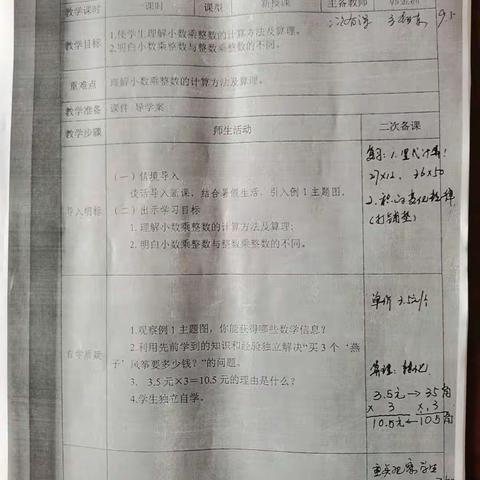 教学课时 课时 课型 新授课 主备教师
二次备课 9.5
教学目标
1.使学生理解小数乘整数的计算方法及算理。
2.明白小数乘整数与整数乘整数的不同。
重难点 理解小数乘整数的计算方法及算理。
教学准备 课件 导学案
教学步骤 师生活动 二次备课
导入明标
(一)情境导入
谈话导入新课,结合暑假生活,引入例1主题图。
(二)出示学习目标
1.理解小数乘整数的计算方法及算理;
2.明白小数乘整数与整数乘整数的不同。
复习:1.竖式计算:
27×12, 36×50
2.积的变化规律
(打铺垫)
自学质疑
1.观察例1主题图,你能获得哪些数学信息?
2.利用先前学到的知识和经验独立解决“买3个‘燕
子’风筝要多少钱?”的问题。
3. 3.5元×3=10.5元的理由是什么?
4.学生独立自学。
单价 3.5元/个
算理:转化
3.5元→35角
× 3 × 3
10.5元←105角
学生